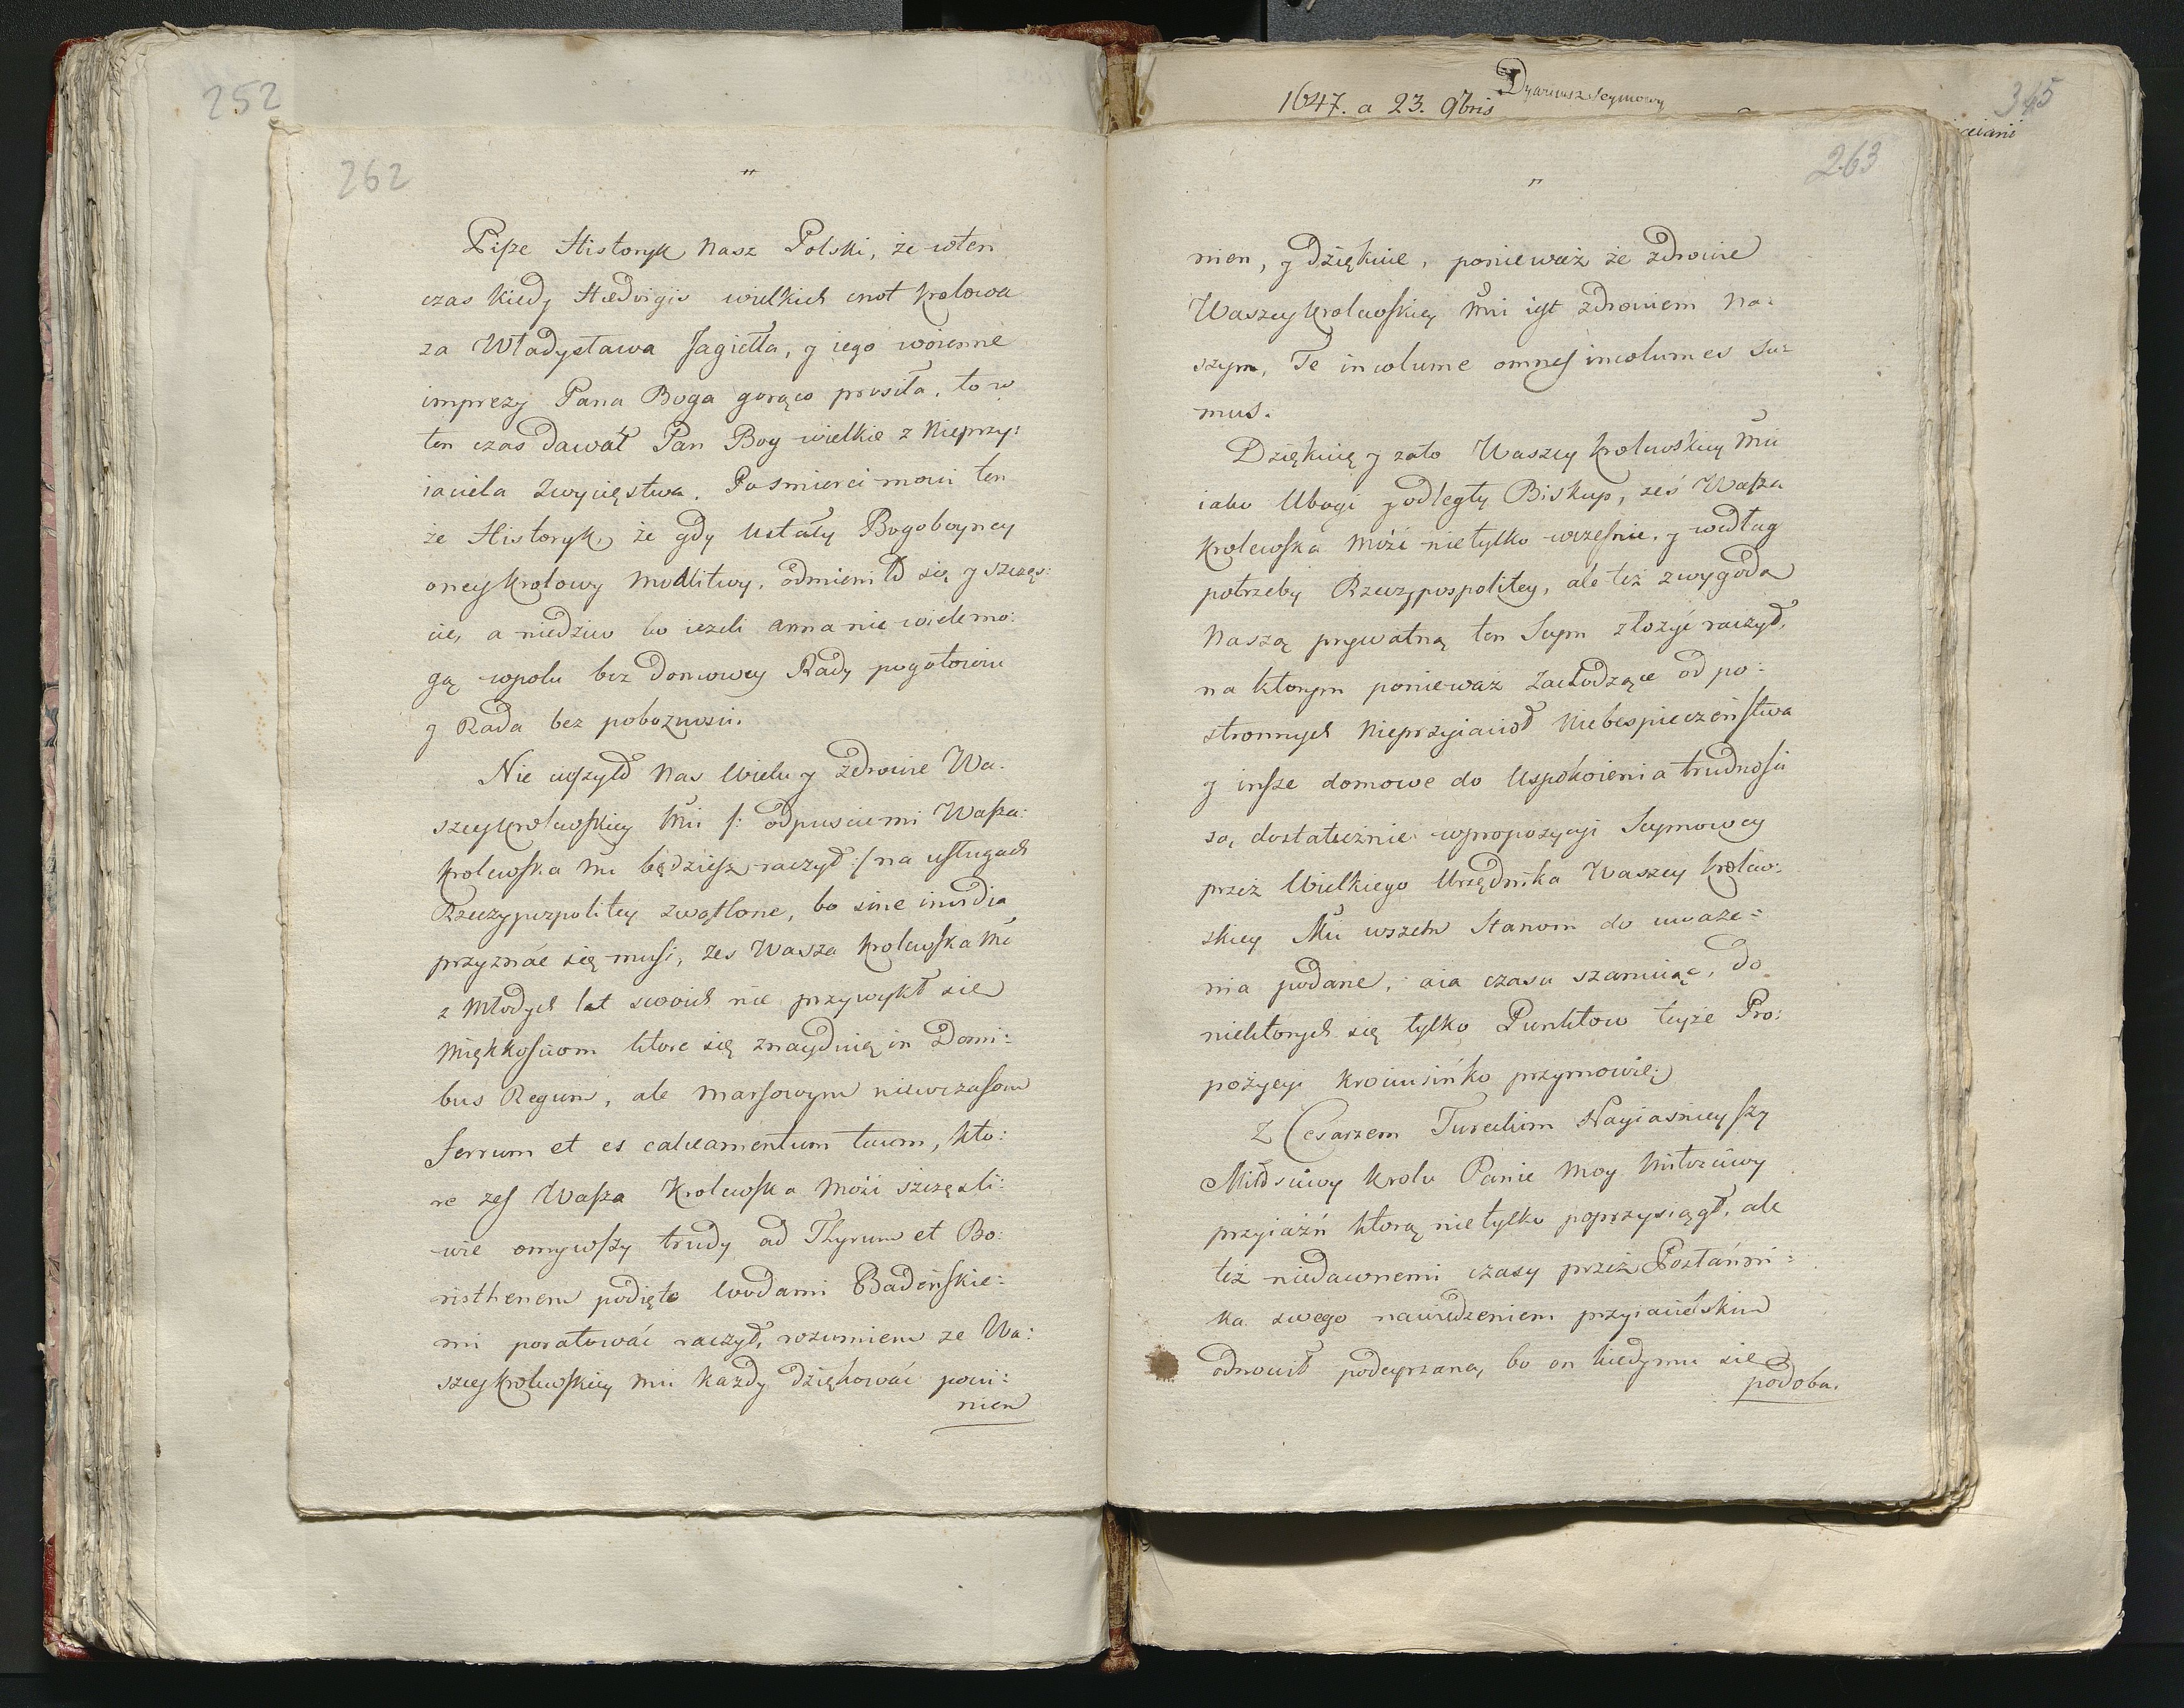 252
262
"
Pisze Historyk Nasz Polski, że wten
czas kiedy Hedvigis wielkich cnot krolowa
za Władysława Jagiełła, y iego woienne
imprezy Pana Boga gorąco prosiła, to w
ten czas dawał Pan Bog wielkie z Nieprzy:
iaciela zwycięstwa. Po smierci mowi ten
że Historyk, że gdy ustały Bogoboyney
oney krolowy modlitwy, odmieniło się y szczęs:
cie, a niedziw bo iezeli arma nie wiele mo:
gą wpolu bez Domowey Rady pogotowiu
y Rada bez poboznosci.
Nie cieszyło nas wielu y zdrowie Wa-
szey krolewskiey Mci /: odpuscie mi Wasza
krolewska Mc będziesz raczył :/ na usługach
Rzeczypospolitey zwątlone, bo sine invidia
przyznać się musi, zes Wasza krolewska Mc
z Młodych lat swoich nie przywykł sie
Miękkosciom ktore się znayduią in Domi:
bus Regum, ale marsowym niewczasom
ferrum et es calceamentum tuum, kto:
re zes Wasza Krolewska Mość szczęsli:
wie omywszy trudy ad Thyrum et Bo:
risthenem podięte wodami Badeńskie:
mi poratować raczył, rozumiem ze Wa:
szey krolewskiey Mci kazdy dziękować powi:
nien
1647. a 23. 9bris
Dyaryusz Seymowy
345
263
"
nien, y dziękuie, ponieważ że zdrowie
Waszey krolewskiey Mci iest zdrowiem na-
szym, Te incolume omnes incolumes su-
mus.
Dziękuię y zato Waszey krolewskiey Mci
iako Ubogi y odległy Biskup, żeś Wasza
krolewska Mość nietylko wczesnie, y według
potrzeby Rzeczypospolitey, ale też zwygodą
Naszą prywatną ten Seym złożyć raczył,
na ktorym ponieważ zachodzące od po:
stronnych Nieprzyiacioł Niebespieczeństwa
y insze domowe do Uspokoienia trudnosci
są, dostatecznie wpropozycyi Seymowey
przez Wielkiego Urzędnika Waszey krolew:
skiey Mci wszem Stanom do uwaze:
nia podane, aia czasu szanuiąc, do
niektorych się tylko Punktow teyże Pro:
pozycyi krociusińko przymowię;
Z Cesarzem Tureckim Nayiasnieyszy
Miłosciwy krolu Panie Moy Miłosciwy
przyiaźń ktorą nietylko poprzysiągł, ale
też niedawnemi czasy przez Posłańni:
ka swego nawiedzeniem przyiacielskim
odnowił podeyrzana, bo on kiedy mu się
podoba.